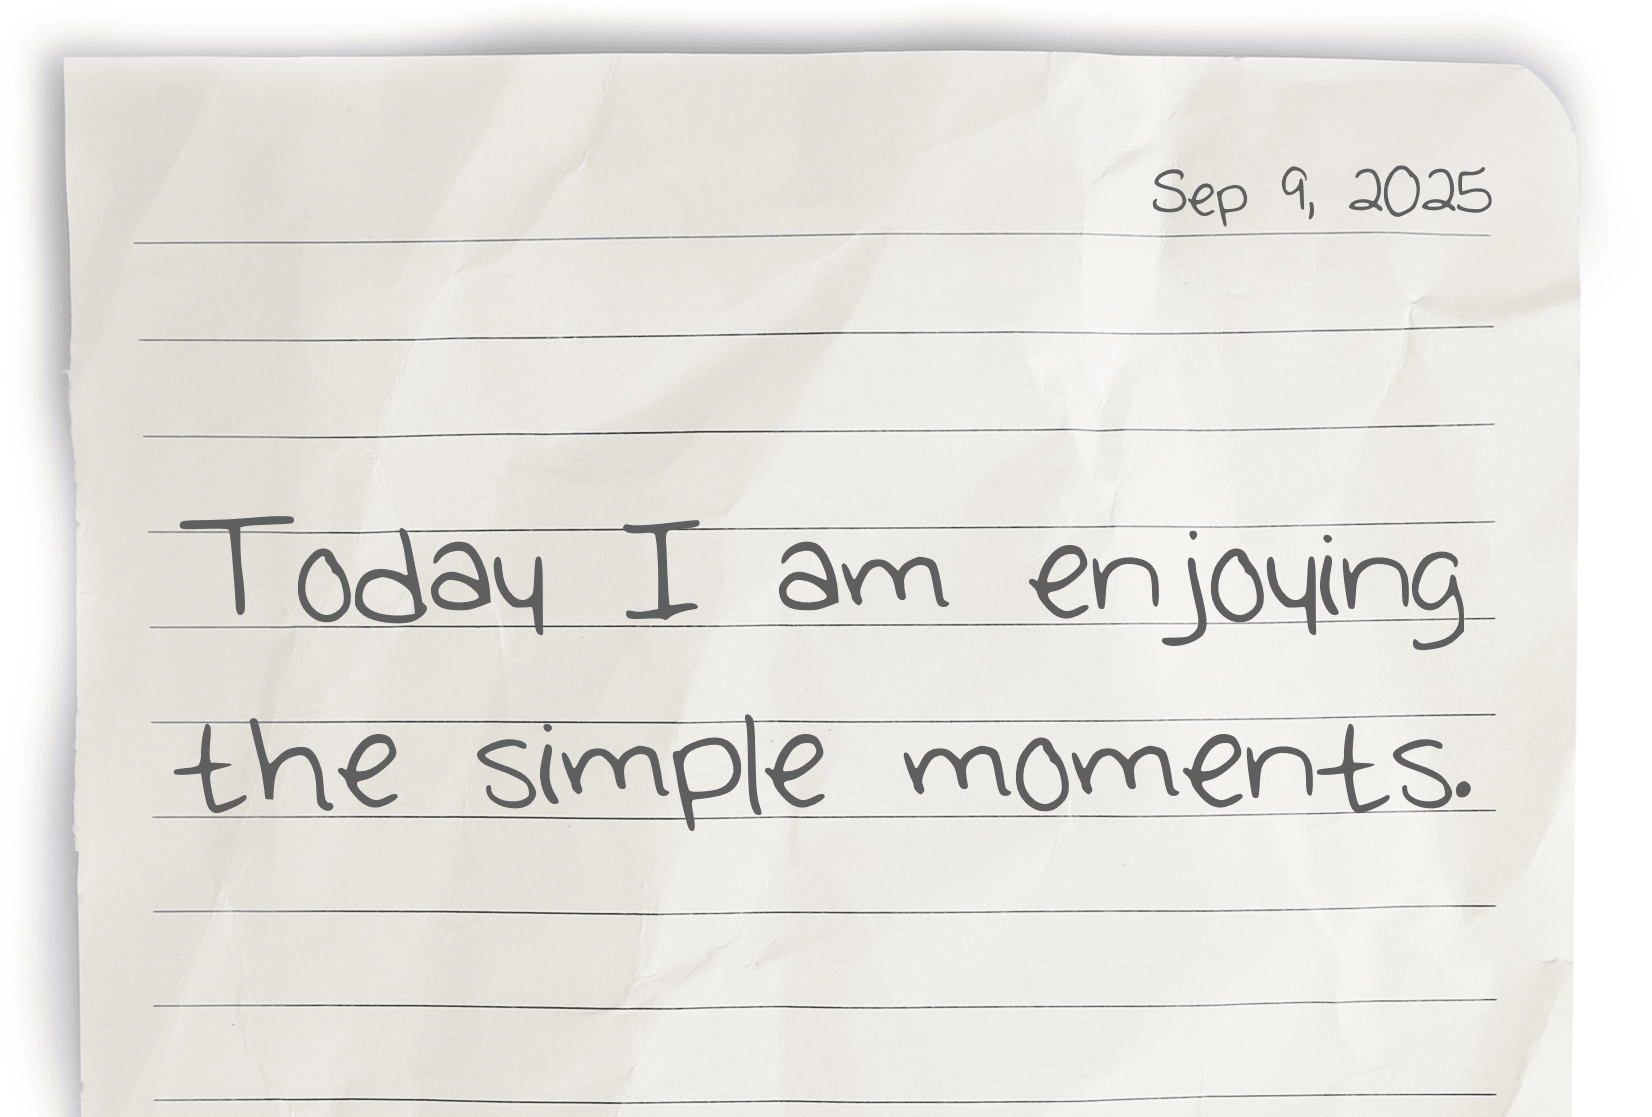 Sep 9, 2025
Today I am enjoying
the simple moments.